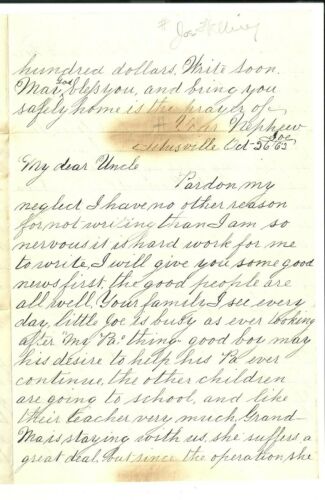 hundred dollars. Write soon.
May God bless you, and bring you
safely home is the prayer of
Your Nephew
Joe
Titusville Oct 26 '62
My dear Uncle
Pardon my
neglect I have no other reason
for not writing than I am so
nervous it is hard work for me
to write, I will give you some good
news first, the good people are
all well. Your family I see every
day, little Joe is busy as ever looking
after "My Pa's" thing good boy may
his desire to help his Pa ever
continue, the other children
are going to school, and like
their teacher very much, Grand
Ma is staying with us, she suffers a
great deal, but since the operation, she